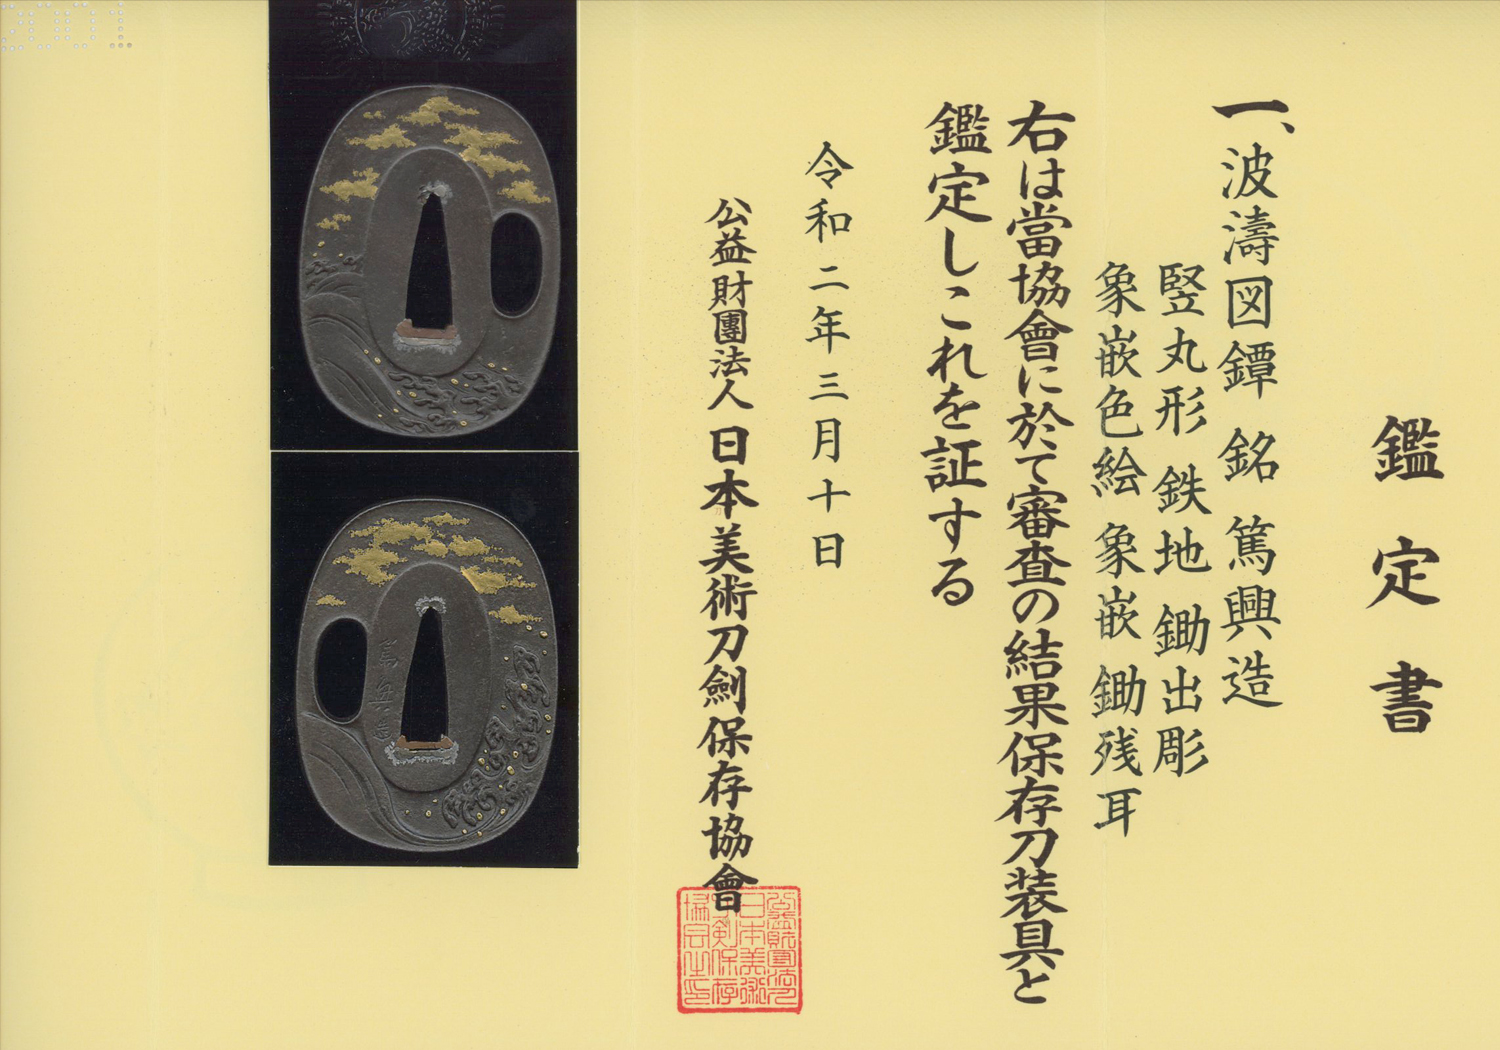 鑑定書
一、波濤図鐔 銘 篤興造
竪丸形 鉄地 鋤出彫
象嵌色絵 象嵌 鋤残耳
右は當協會に於て審査の結果保存刀装具と
鑑定しこれを証する
令和二年三月十日
公益財團法人 日本美術刀劍保存協會
篤興造